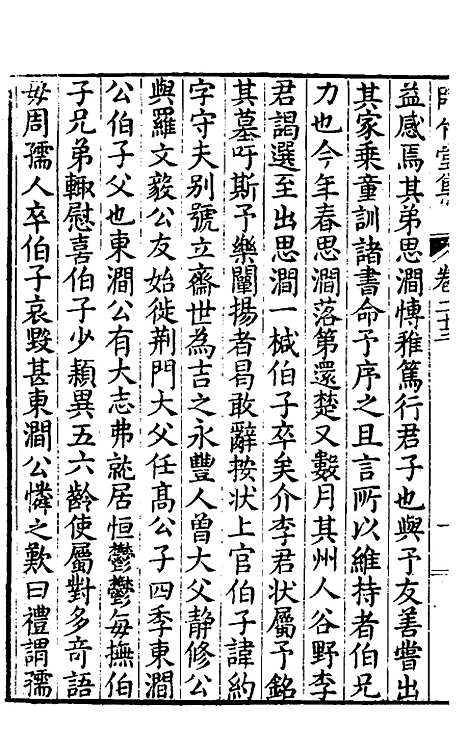 卷二十三
益感焉其弟思澗愽雅篤行君子也與予友善嘗出
其家乘童訓諸書命予序之且言所以維持者伯兄
力也今年春思澗落第還楚又數月其州人谷野李
君謁選至出思澗一椷伯子卒矣介李君状屬予銘
其墓吁斯予樂闡揚者曷敢辭按状上官伯子諱約
字守夫别號立齋世為吉之永豐人曾大父静修公
與羅文毅公友始徙荆門大父任髙公子四季東澗
公伯子父也東澗公有大志弗就居恒鬱鬱每撫伯
子兄弟輙慰喜伯子少頴異五六齡使屬對多竒語
毋周孺人卒伯子哀毁甚東澗公憐之歎曰禮謂孺